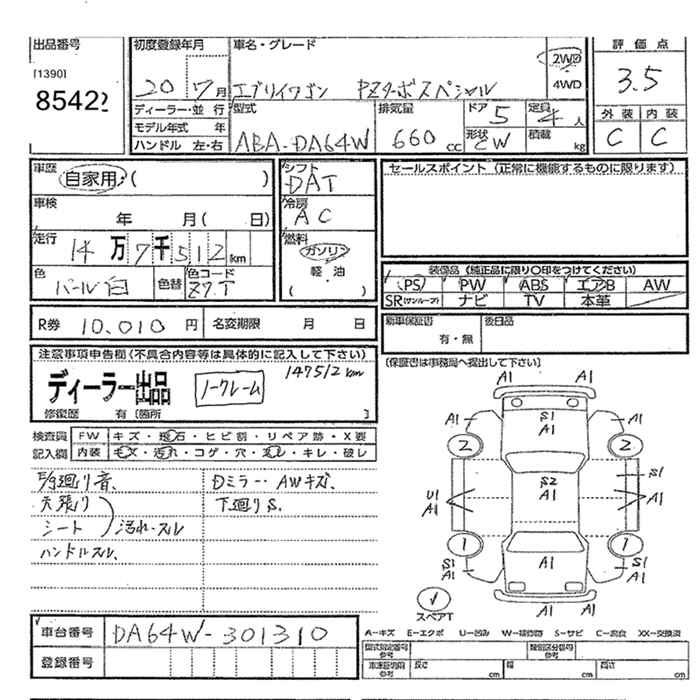 出品番号
[1390]
85422
初度登録年月
20 年 7月
車名・グレード
エブリイワゴン PZターボスペシャル
2WD
4WD
評価点
3.5
外装 内装
C C
ディーラー・並行
モデル年式 年
ハンドル 左・右
型式
ABA-DA64W
排気量
660 cc
ドア 5
形状 CW
定員 4人
積載 kg
車歴
自家用・( )
車検
年 月( 日)
走行 14万7千512km
色 パール白
色替
色コード
Z7T
シフト
DAT
冷房
AC
燃料
ガソリン
軽・油
( )
セールスポイント(正常に機能するものに限ります)
装備品(純正品に限り○印をつけてください)
PS PW ABS エアB AW
SR(サンルーフ) ナビ TV 本革
R券 10,010円
名変期限 月 日
新車保証書
有・無
後日品
(保証書は事務局へ提出して下さい)
注意事項申告欄(不具合内容等は具体的に記入して下さい)
ディーラー出品
ノークレーム
147512km
修復歴 有〔箇所 〕
検査員
記入欄
FW キズ・飛石・ヒビ割・リペア跡・X要
内装 キズ・汚れ・コゲ・穴・スレ・キレ・破レ
廻り音、
天張り
シート 汚れ・スレ
ハンドルスレ、
Dミラー・AWキズ、
下廻りS、
A1 A1
A1 S1 A1 A1
2 2
S2 A1
U1 A1
S1 A1
1 1
S1 A1
A1
S1 A1
A1
スペアT
車台番号 DA64W-301310
登録番号
A−キズ E−エクボ U−凹み W−補修跡 S−サビ C−腐食 XX−交換済
型式指定番号 参考
類別区分番号 参考
車庫証明用 参考
長さ cm
幅 cm
高さ cm